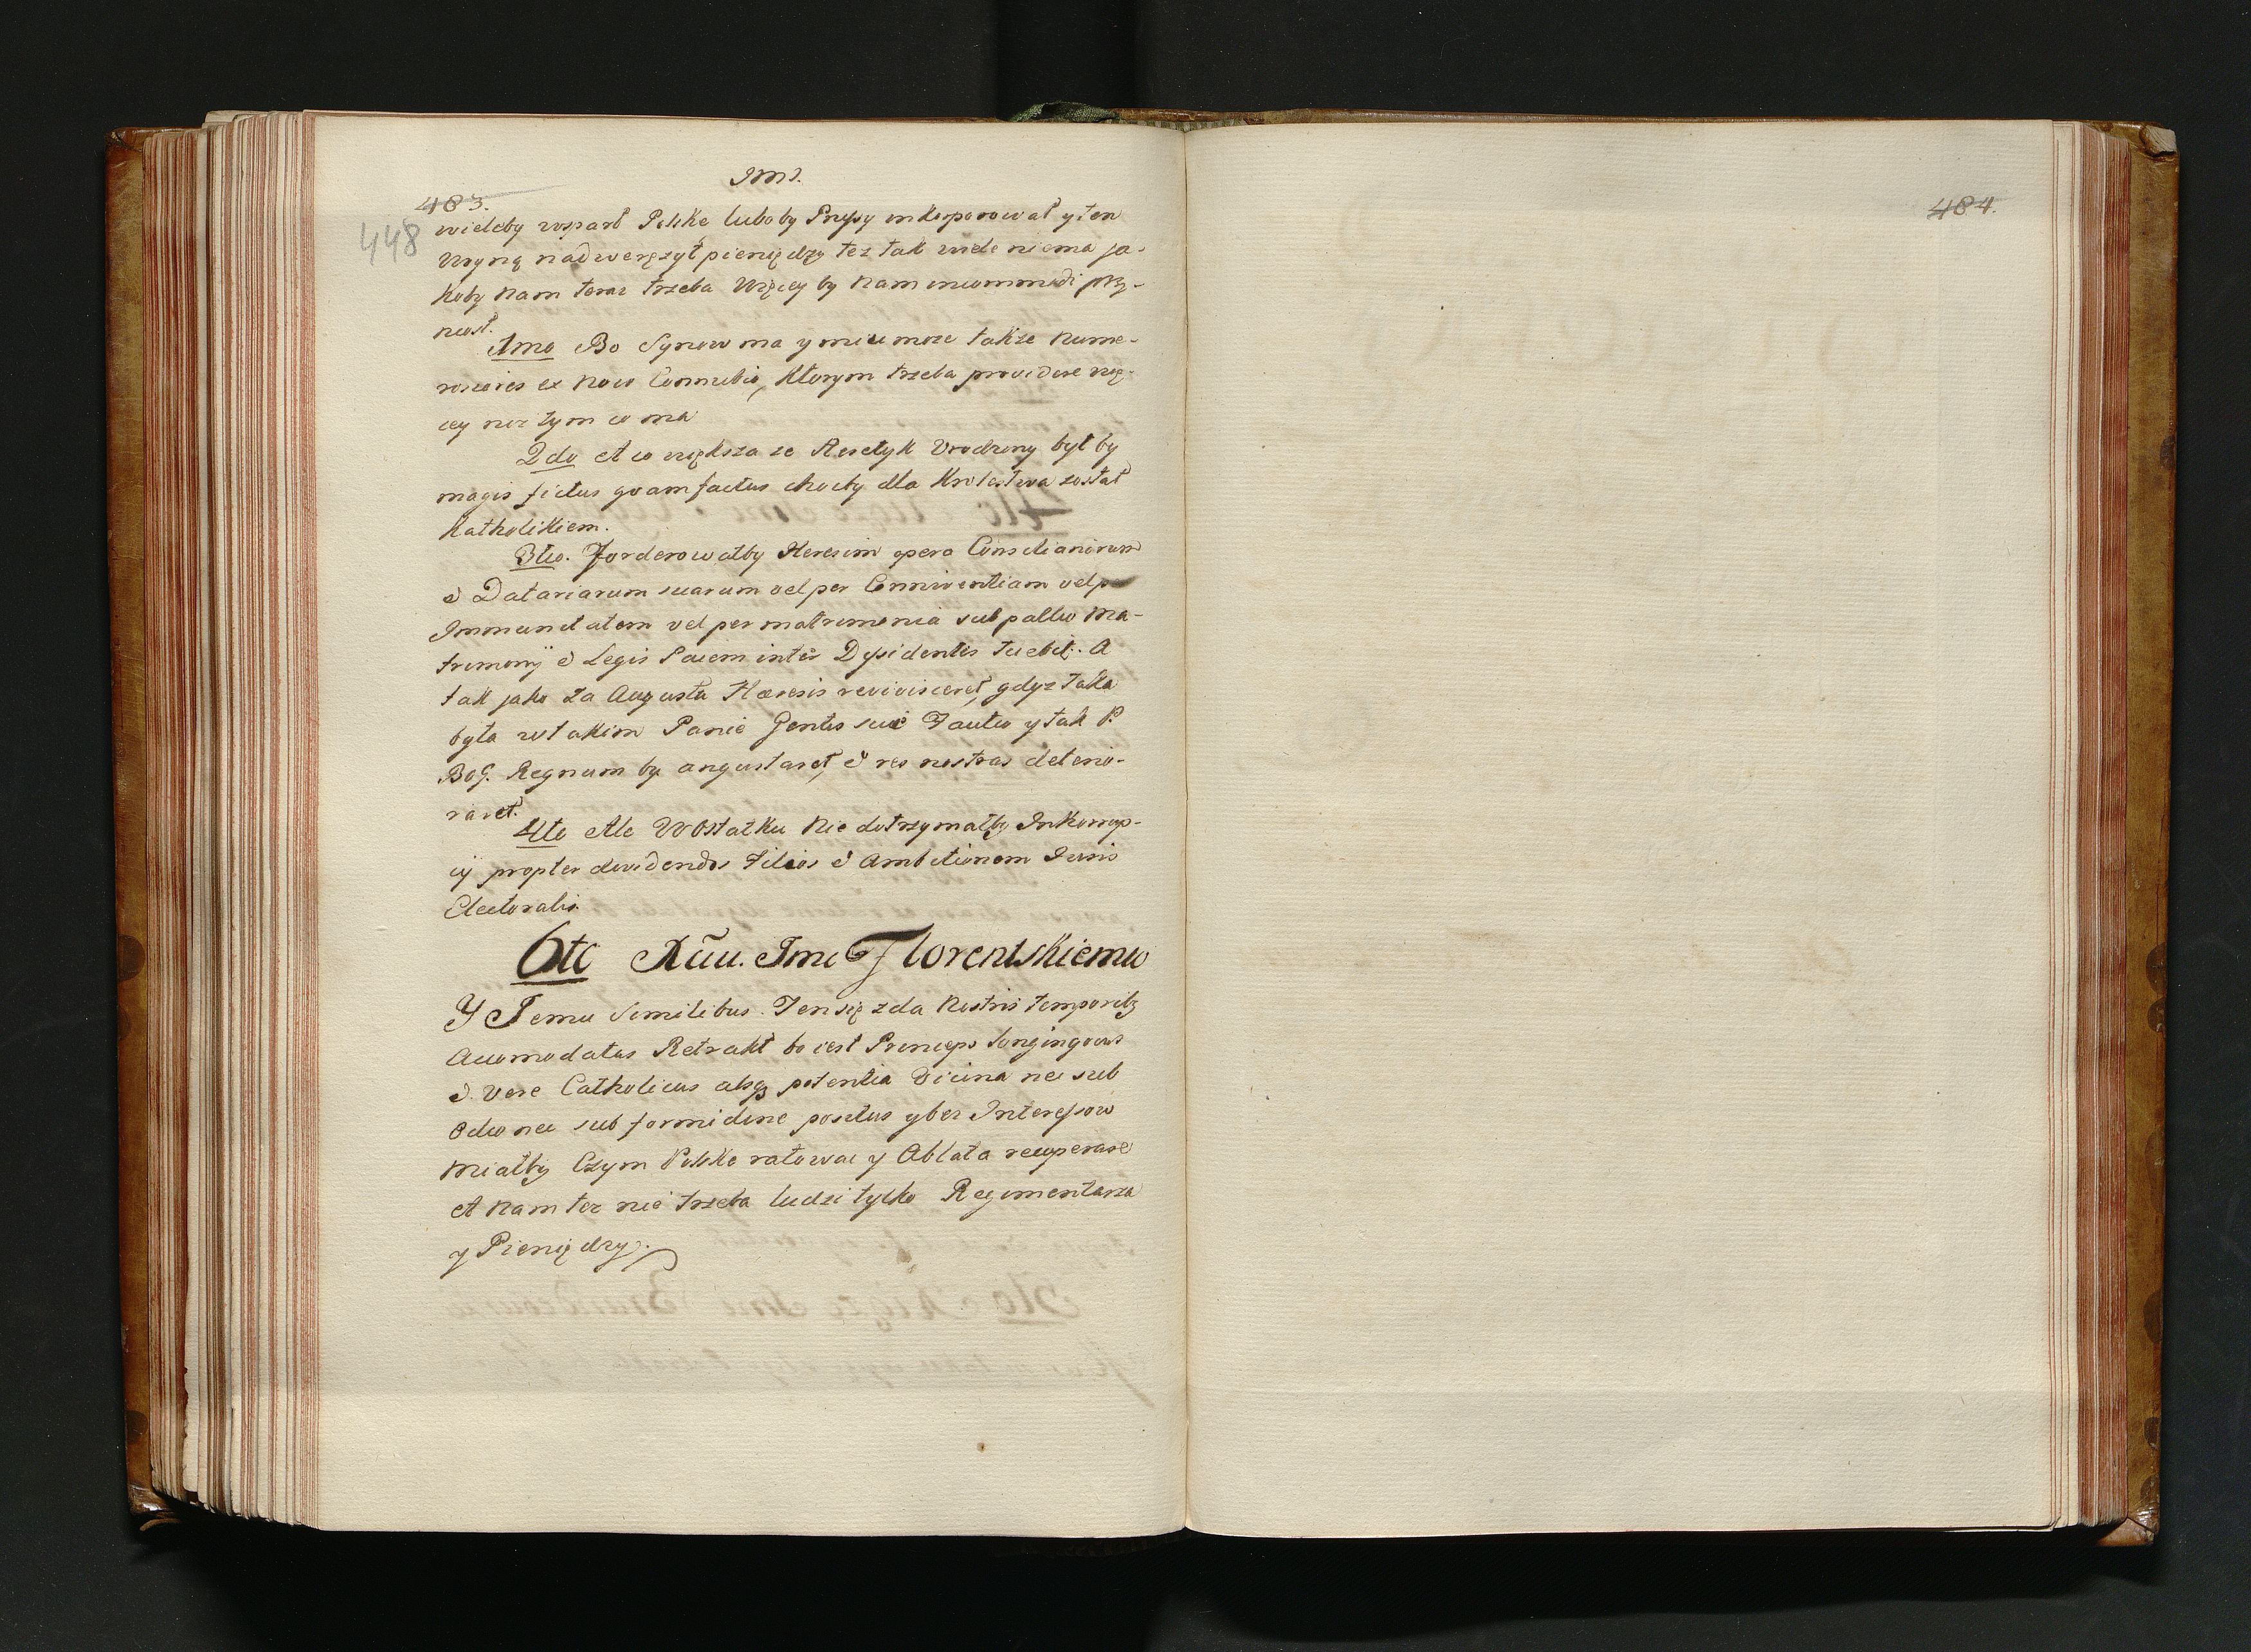 Imć.
483.
448
wieleby wsparł Polskę luboby Prusy inkorporował y ten
Woyną nadwerężył pieniędzy też tak wiele niema ja-
koby nam teraz trzeba Więcey by nam incommodi przy-
niosł.
1mo Bo Synow ma y mieć może także nume-
rosiores ex novo Connubio, ktorym trzeba providere wię-
cey niż tym co ma
2do A co większa że Heretyk Urodzony był by
magis fictus quam factus choćby dla Krolestwa został
Katholikiem.
3tio. Forderowałby Heresim opera Consilianiorum
& Datariarum suarum vel per Conniventiam vel per
Immunitatem vel per matrimonia sub pallio Ma-
trimonÿ & Legis Pacem inter Dyssidentes tuebit. A
tak jako za Augusta Hæresis revivisceret, gdyż taka
była w takim Panie Gentis suæ Fautio y tak P.
Bog. Regnum by angustaret, & res nostras deterio-
raret.
4to Ale Wostatku nie dotrzymałby Inkorrup-
cÿ propter dividendos Filios & Ambitionem Juris
Electoralis.
6to Xciu. Imć Florentskiemu
Y Temu Similibus. Ten się zda nostris temporibq
Accomodatus Retrakt bo iest Princeps longinquus
& vere Catholicus absq potentia Vicina nec sub
Odio nec sub formidine positus y bez Interessow
Miałby Czym Polskę ratować y Ablata recuperare
A nam też nie trzeba ludzi tylko Regimentarza
y Pieniędzy.
484.